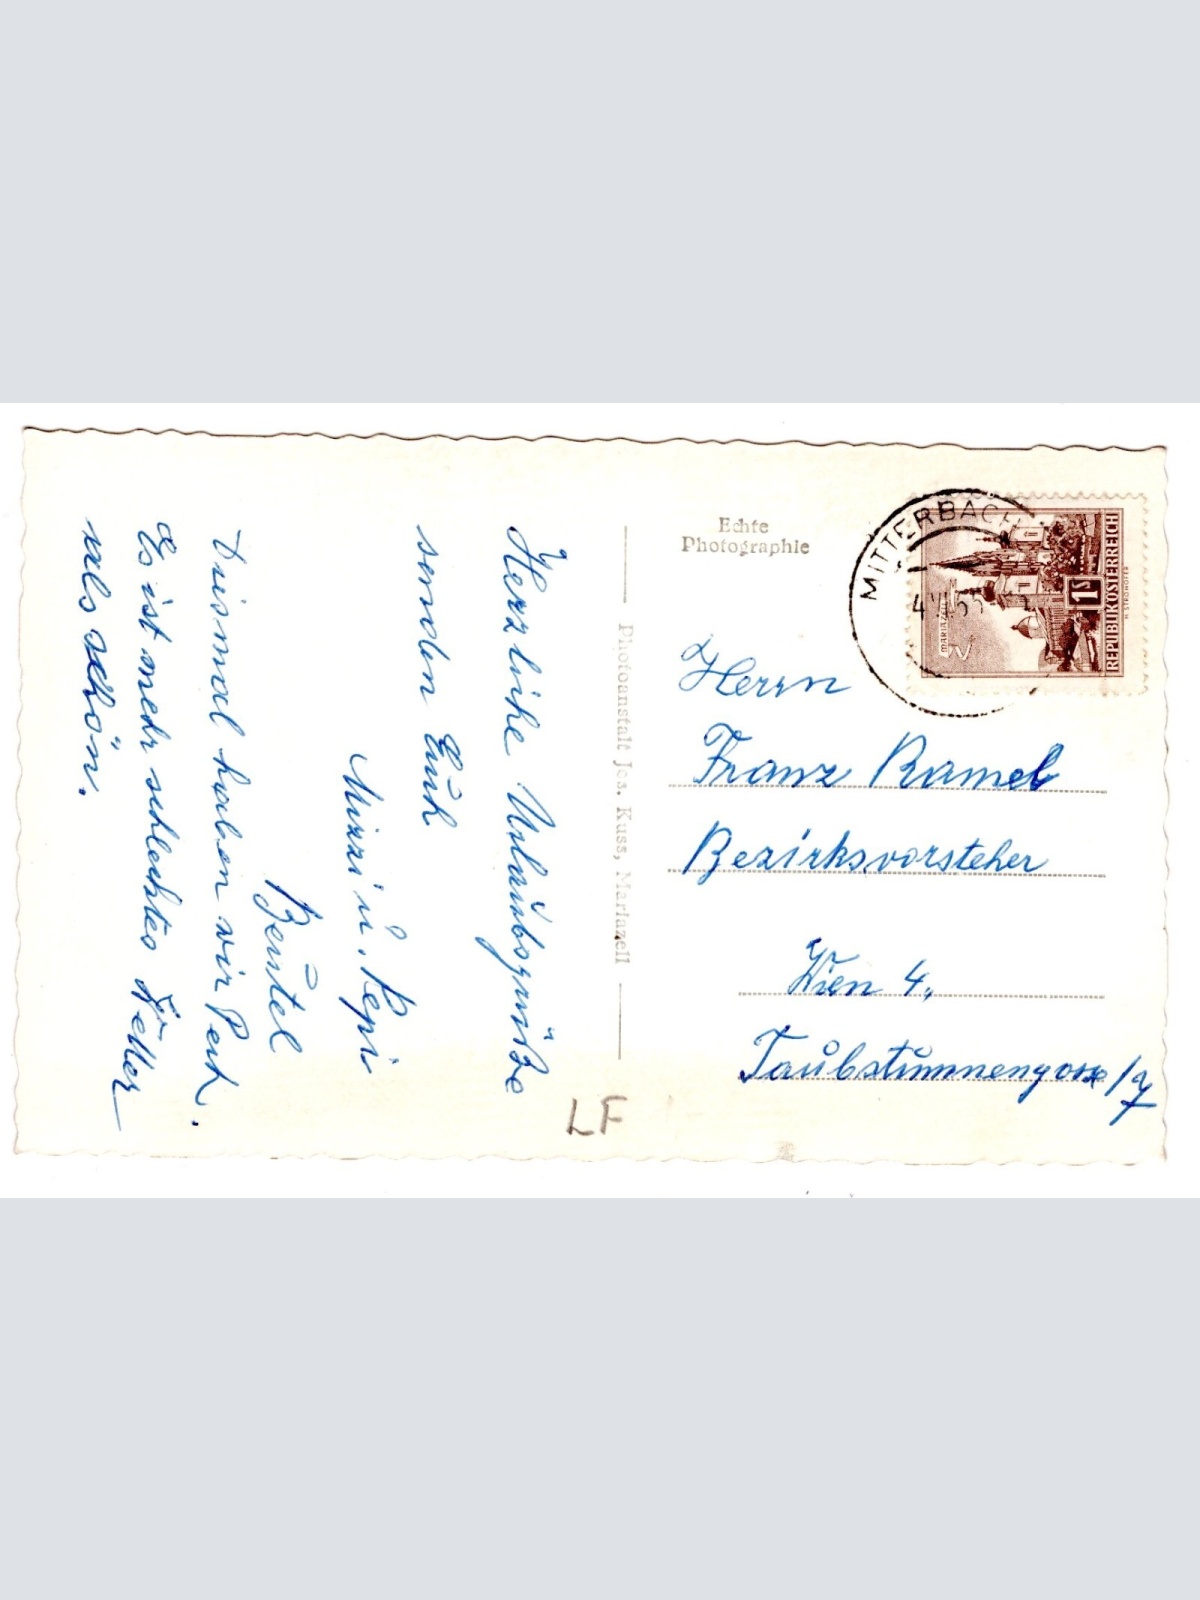 Herzliche Urlaubsgrüße
senden Euch
Mizzi u. Pepi
Beutel
Diesmal haben wir Pech.
Es ist mehr schlechtes Wetter
als schön.
Echte
Photographie
Photoanstalt Jos. Kuss, Mariazell
MITTERBACH
MARIAZELL
1S
REPUBLIK ÖSTERREICH
Herrn
Franz Ramel
Bezirksvorsteher
Wien 4,
Taubstummengasse
LF